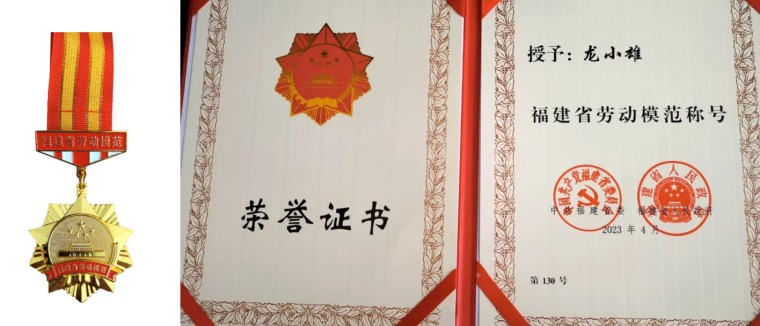 福建省劳动模范
福建省劳动模范
荣誉证书
授予：龙小雄
福建省劳动模范称号
中国共产党福建省委员会
福建省人民政府
中共福建省委 福建省人民政府
2023 年 4 月
第 130 号